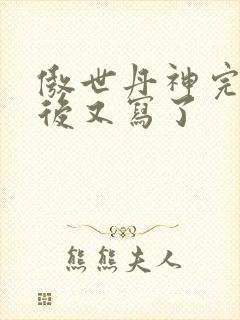 傲世丹神完
後又寫了
熊熊夫人